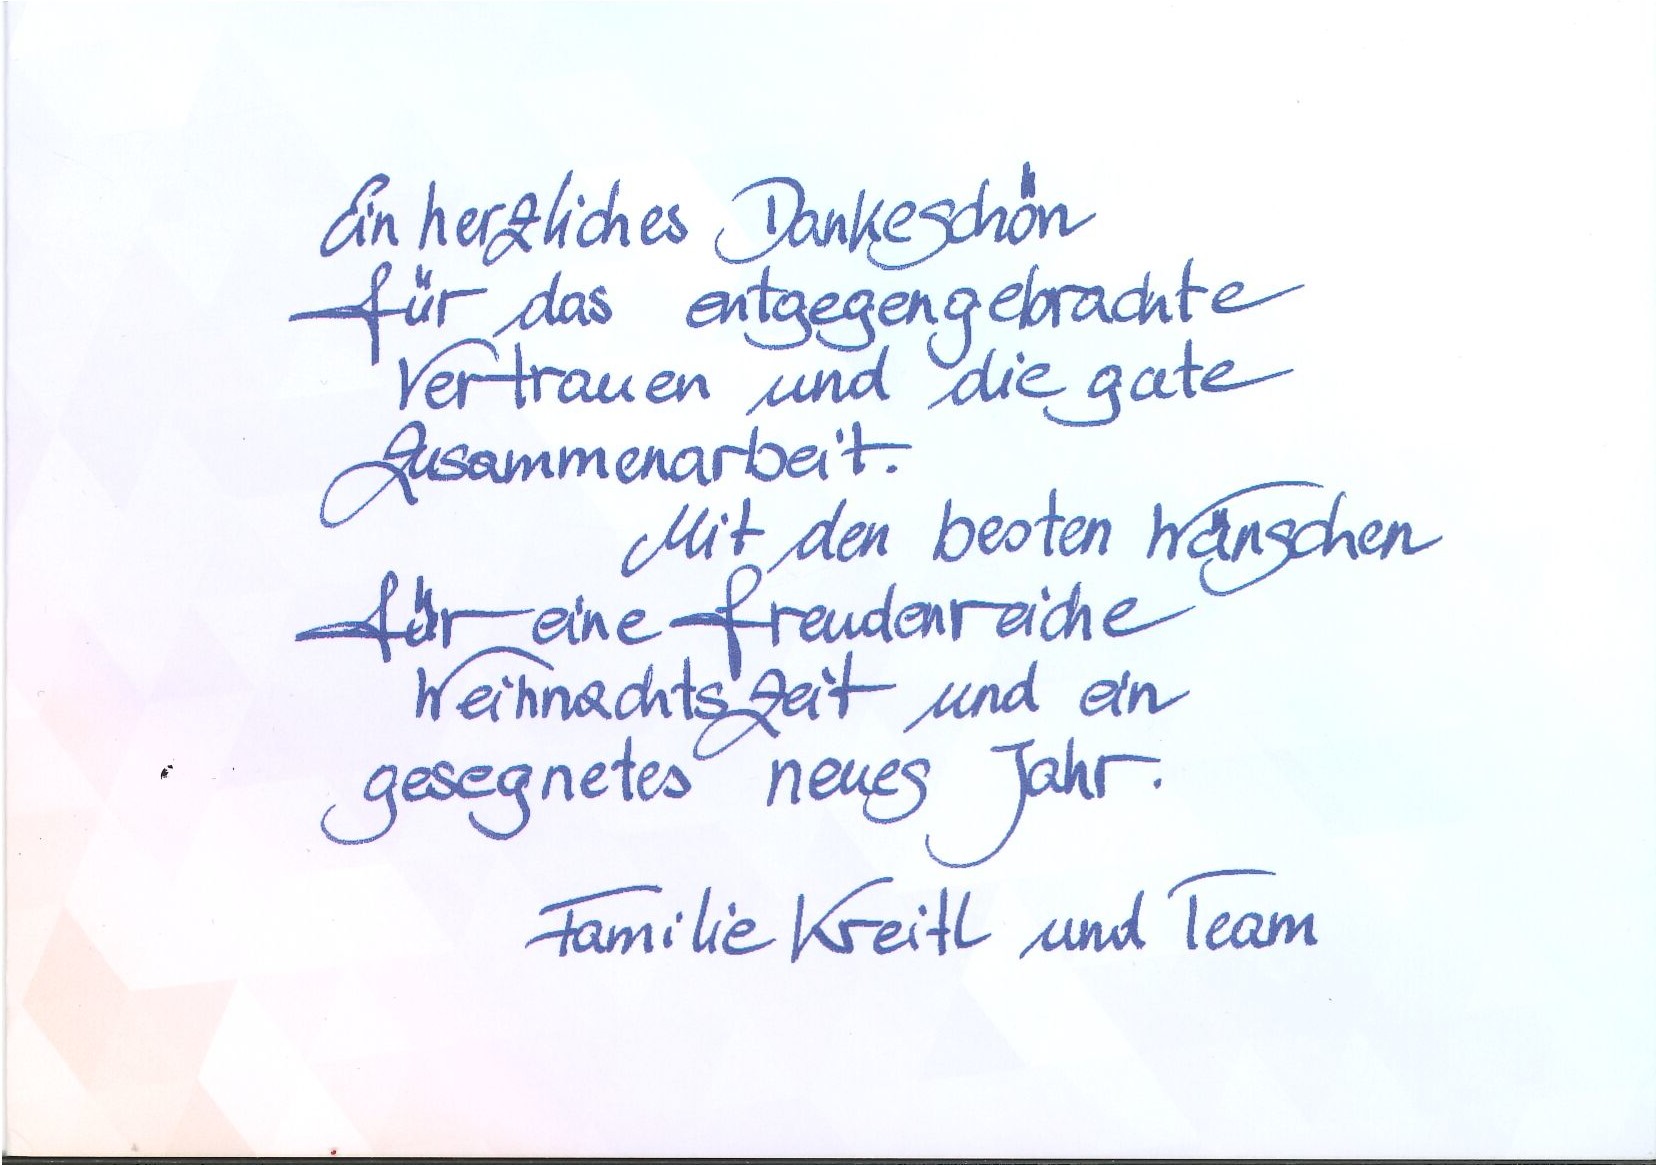 Ein herzliches Dankeschön
für das entgegengebrachte
Vertrauen und die gute
Zusammenarbeit.
Mit den besten Wünschen
für eine freudenreiche
Weihnachtszeit und ein
gesegnetes neues Jahr.
Familie Kreitl und Team